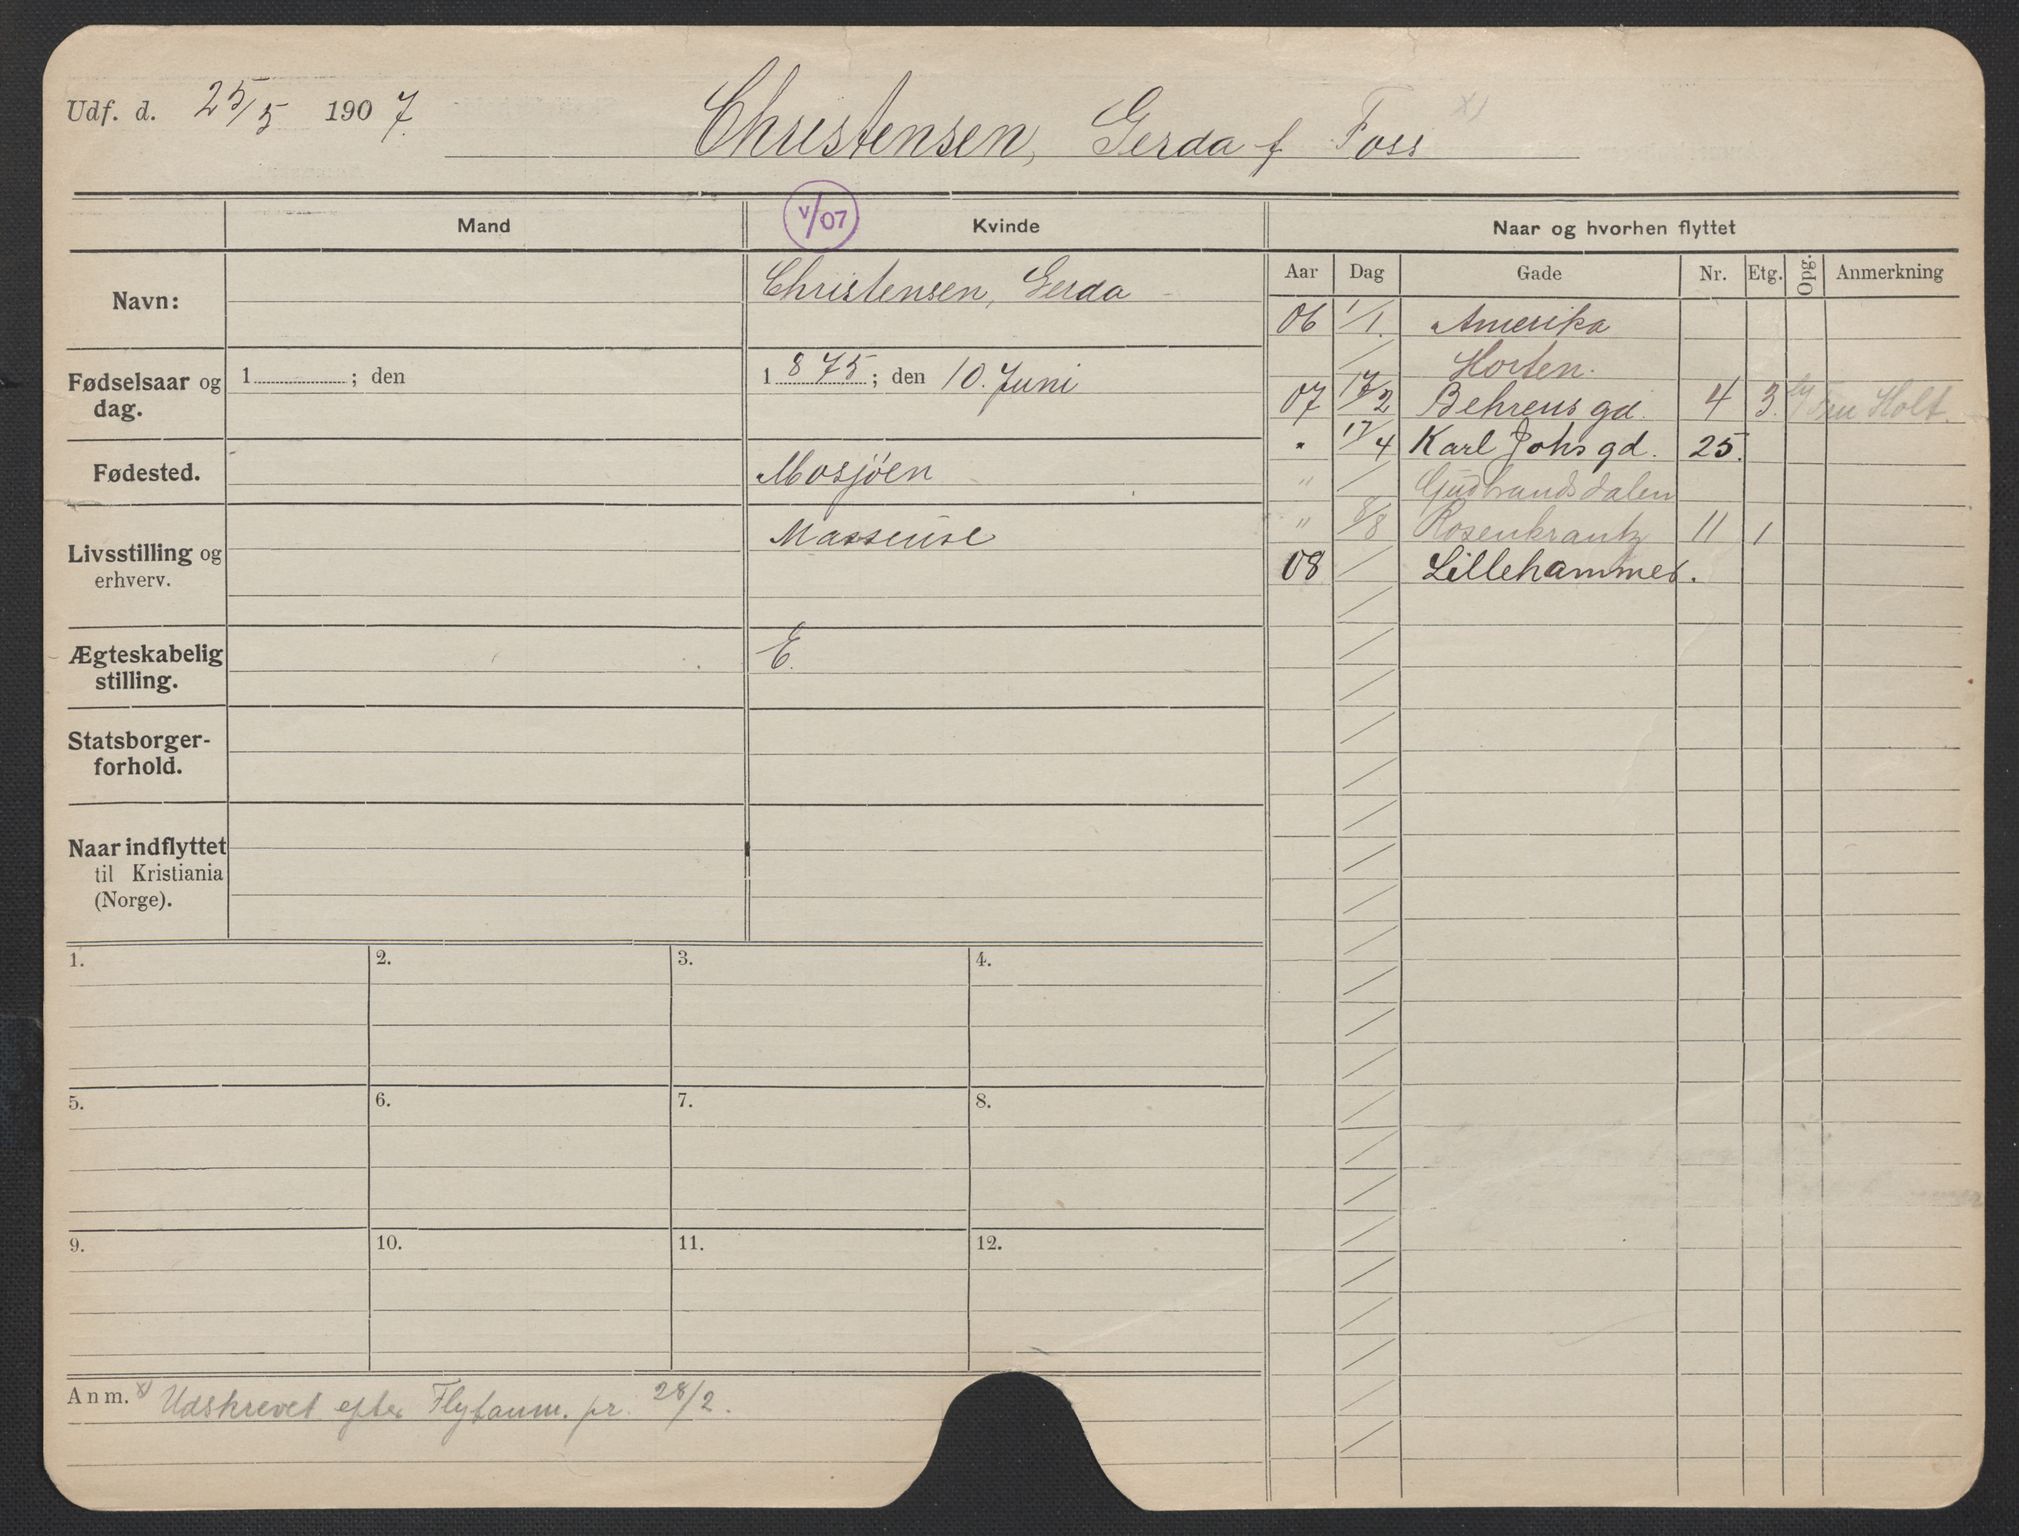 Udf. d. 25/5 1907.
Christensen, Gerda f Foss x)
Mand
V/07
Kvinde
Naar og hvorhen flyttet
Aar Dag Gade Nr. Etg. Opg. Anmerkning
Navn:
Christensen, Gerda
Fødselsaar og dag.
1 ; den
1875; den 10. Juni
Fødested.
Mosjøen
Livsstilling og erhverv.
Masseuse
Ægteskabelig stilling.
E.
Statsborgerforhold.
Naar indflyttet til Kristiania (Norge).
06 1/1. Amerika
/ Horten.
07 17/2 Behrens gd. 4 3. Fru Holt.
" 17/4 Karl Johs gd. 25.
" / Gudbrandsdalen
" 8/8 Rosenkrantz 11 1
08 / Lillehammer.
1. 2. 3. 4.
5. 6. 7. 8.
9. 10. 11. 12.
Anm. x) Udskrevet efter Flytanm. pr. 28/2.